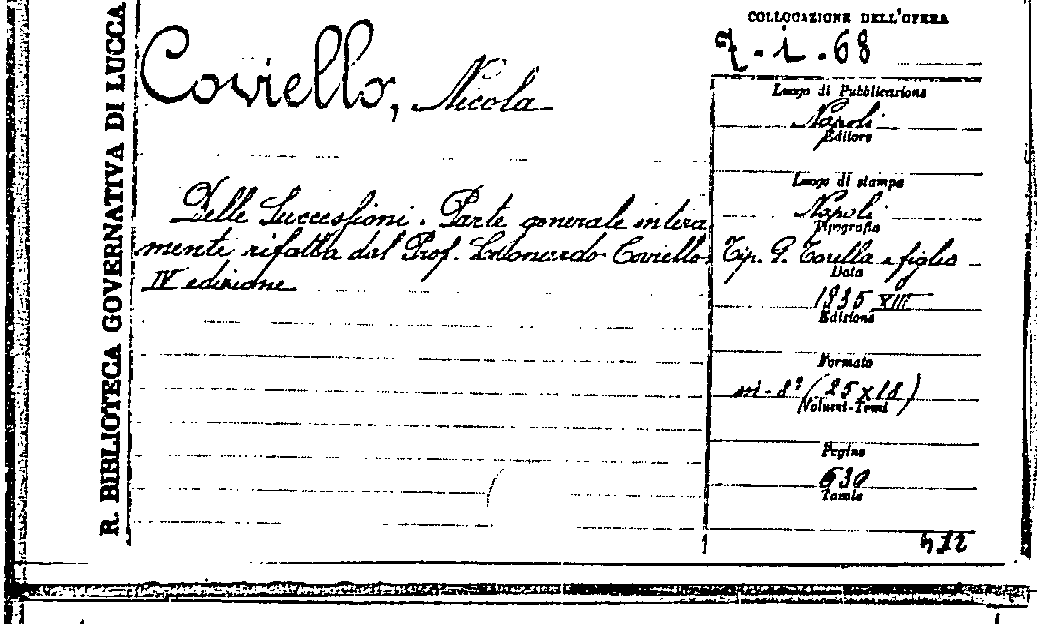 R. BIBLIOTECA GOVERNATIVA DI LUCCA
Coviello, Nicola
Delle Successioni. Parte generale intera
mente rifatta dal Prof. Leonardo Coviello
IV edizione
COLLOCAZIONE DELL'OPERA
7-i-68
Luogo di Pubblicazione
Napoli
Editore
Luogo di stampa
Napoli
Tipografia
Tip. G. Torella e figlio
Data
1935 XIII
Edizione
Formato
in-8º (25x18)
Volumi-Tomi
Pagine
630
Tavole
412